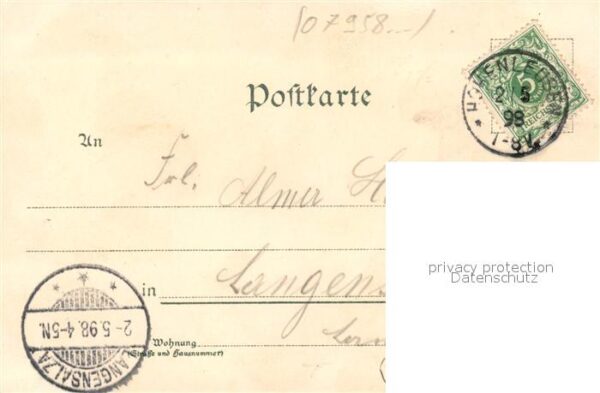 (07958...)
Postkarte
HOHENLEUBEN
2 5
98
7-8V.
An
Frl. Almer H
Langens
in
Wohnung
(Straße und Hausnummer)
LANGENSALZA
2-5.98.4-5N.
privacy protection
Datenschutz